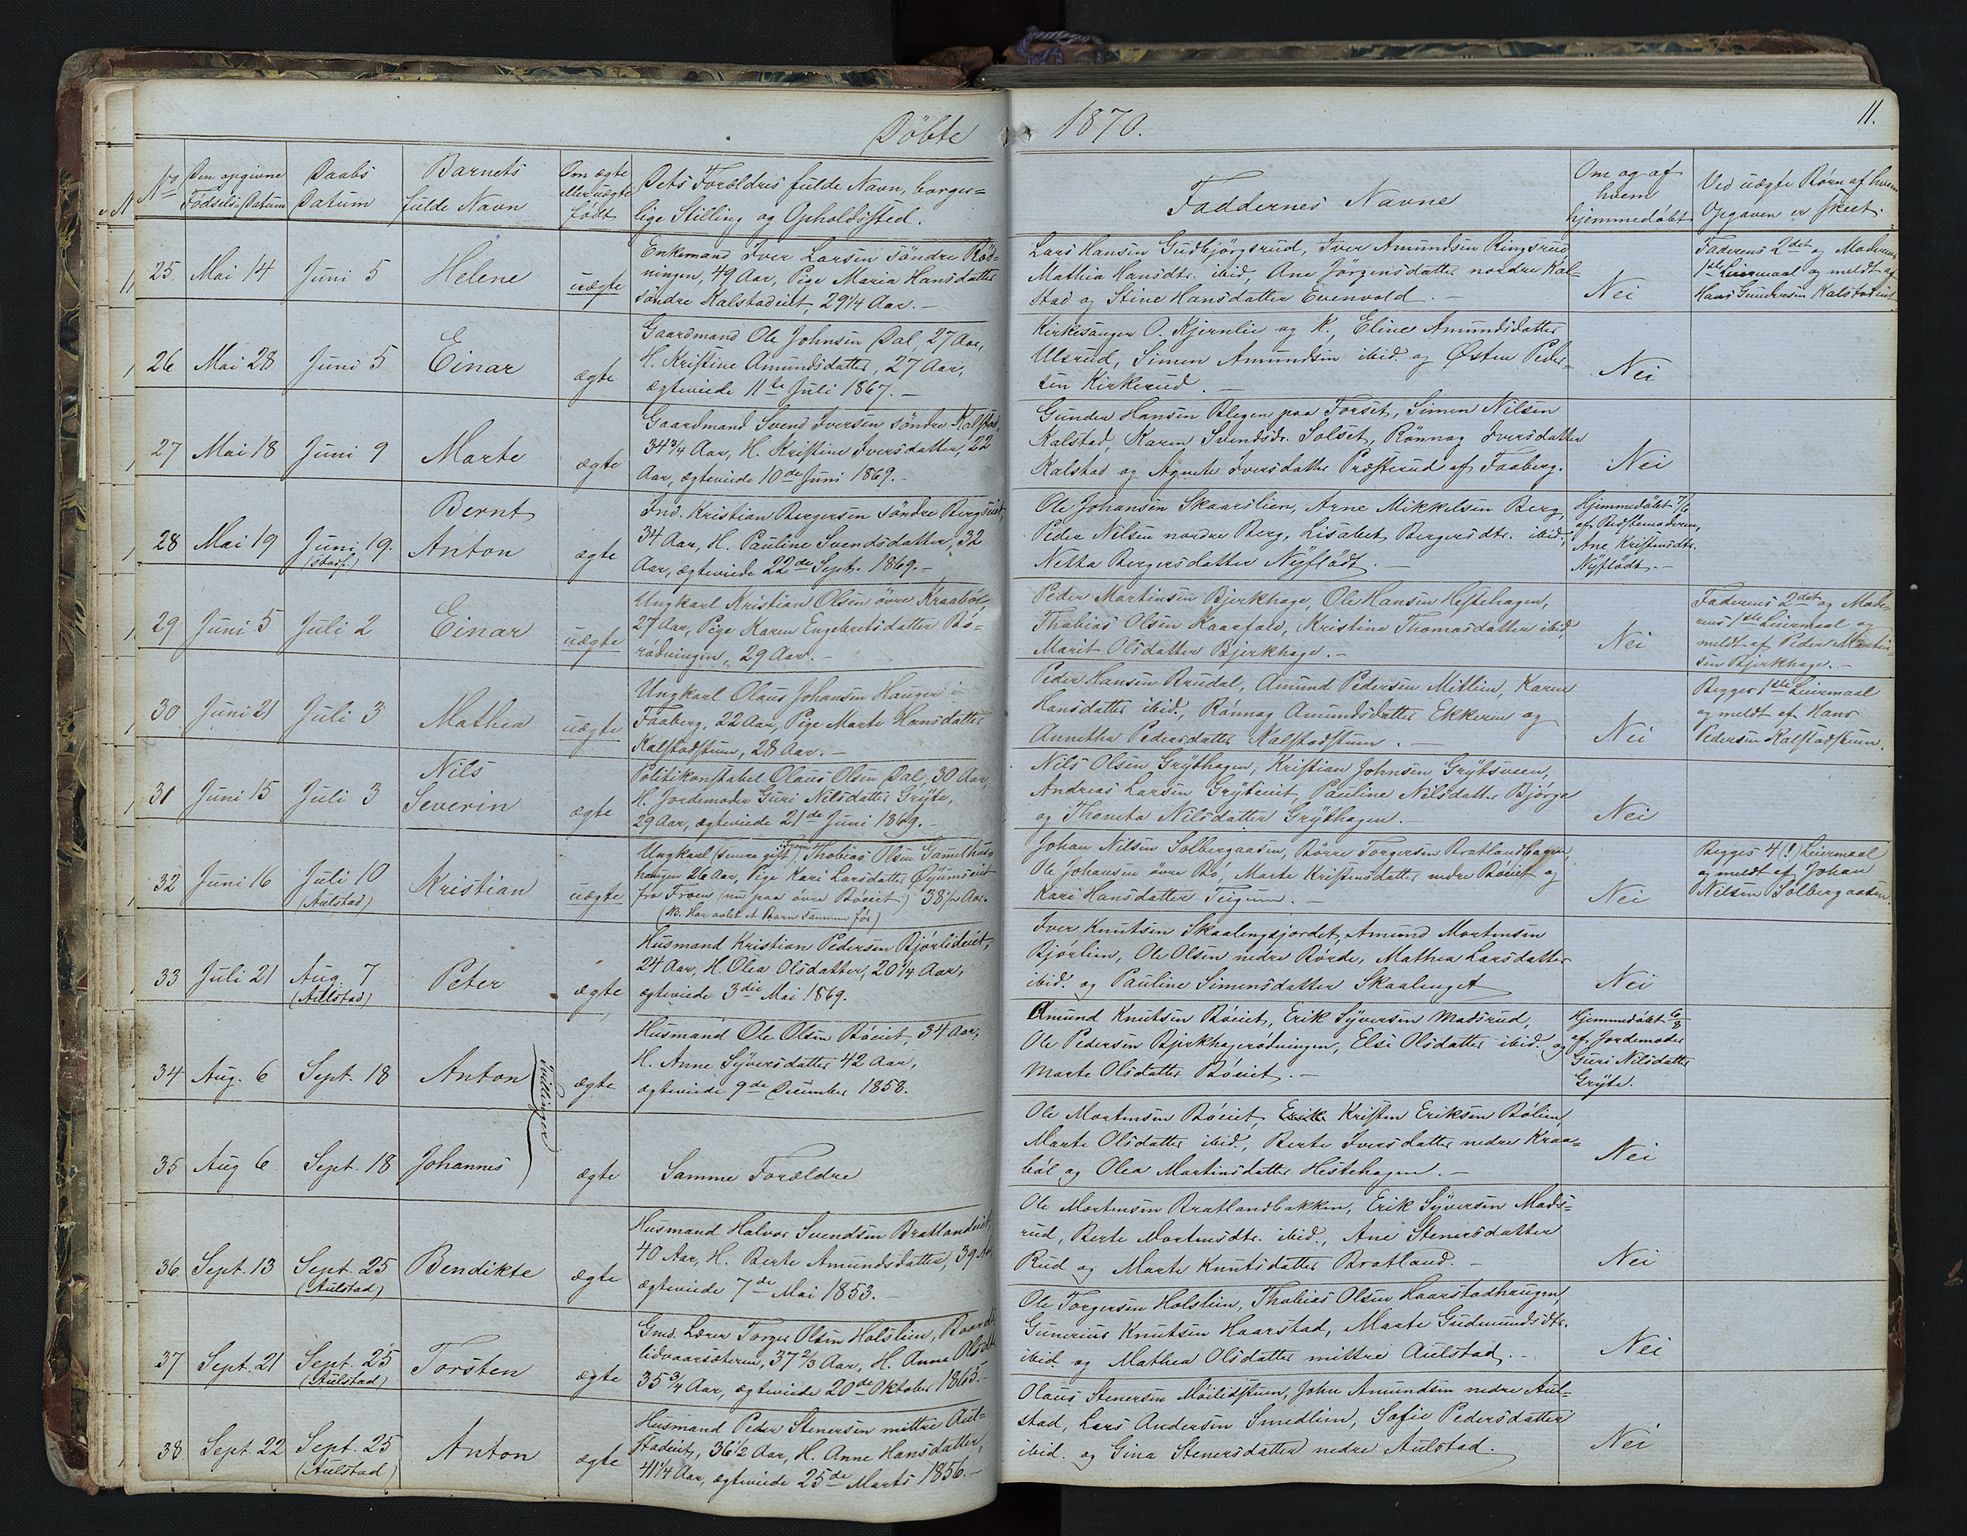 Döbte 1870.
11.
No
Den opgivne Fødsels-Datum
Daabs Datum
Barnets fulde Navn
Om ægte eller uægte født
Dets Forældres fulde Navn, borger=
lige Stilling og Opholdssted.
Faddernes Navne
Om og af hvem hjemmedøbt
Ved uægte Børn af hvem Opgaven er skeet.
25. Mai 14 Juni 5 Helene uægte
Enkemand Iver Larsen søndre Röd=
ningen, 49 Aar, Pige Maria Hansdatter
søndre Kalstadeiet, 29 1/4 Aar. —
Lars Hansen Gudbjørgsrud, Iver Amundsen Ringsrud
Mathia Hansdtr. ibid, Ane Jörgensdatter nordre Kal=
stad og Stine Hansdatter Evenvold. —
Nei
Faderens 2det og Moderens
1ste Leiermaal og meldt af
Hans Gundersen Kalstadeiet
26 Mai 28 Juni 5 Einar ægte
Gaardmand Ole Johnsen Dal, 27 Aar,
H. Kristine Amundsdatter, 27 Aar,
ægteviede 11te Juli 1867. —
Kirkesanger O. Kjernlie og K. Eline Amundsdatter
Ulsrud, Simen Amundsen ibid. og Østen Peder=
sen Kirkerud. —
Nei
27 Mai 18 Juni 9 Marte ægte
Gaardmand Svend Iversen søndre Kalstad,
34 3/4 Aar, H. Kristine Iversdatter, 22
Aar, ægteviede 10de Juni 1869. —
Gunder Hansen Blegen paa Forset, Simen Nilsen
Kalstad, Karen Svendsdr. Solset, Rönnag Iversdatter
Kalstad og Agnete Iversdatter Præsterud af Faaberg.
Nei
28 Mai 19 Juni 19. Bernt
Anton ægte
Ind. Kristian Bergersen Söndre Bergseiet,
34 Aar, H. Pauline Svendsdatter, 32
Aar, ægteviede 22de Sept. 1869. —
Ole Johansen Skaarslien, Arne Mikkelsen Berg,
Peder Nilsen nordre Berg, Lisabet Bergersdtr. ibid,
Netta Bergersdatter Nÿflödt. —
Hjemmedøbt 7/6
af Bedstemoderen,
Ane Kristensdtr.
Nÿflödt. —
29 Juni 5 Juli 2 Einar uægte
Ungkarl Kristian Olsen övre Kraaböl,
27 Aar, Pige Karen Engebretsdatter Bö=
rödningen, 29 Aar. —
Peder Martinsen Bjerkhage, Ole Hansen Hestehagen,
Thobias Olsen Kaasfald, Kristine Thomasdatter ibid,
Marit Olsdatter Bjerkhage. —
Nei
Faderens 2det og Mode=
rens 1ste Leiermaal og
meldt af Peder Martin=
sen Bjerkhage. —
30 Juni 21 Juli 3 Mathea uægte
Ungkarl Olaus Johansen Haugen i
Faaberg, 22 Aar, Pige Marte Hansdatter
Kalstadstuen, 28 Aar. —
Peder Hansen Brudal, Amund Pedersen Mitlien, Karen
Hansdatter ibid., Rönnag Amundsdatter Ekkeren og
Annetha Pedersdatter Kalstadstuen. —
Nei
Begges 1ste Leiermaal
og meldt af Hans
Pedersen Kalstadstuen.
31 Juni 15 Juli 3 Nils
Severin ægte
Politikonstabel Olaus Olsen Dal, 30 Aar,
H. Jordemoder Guri Nilsdatter Grÿte,
29 Aar, ægteviede 21de Juni 1869. —
Nils Olsen Grÿthagen, Kristian Johnsen Grÿtsveen,
Andreas Larsen Grÿteiet, Pauline Nilsdatter Bjørge
og Thoneta Nilsdatter Grÿthagen. —
Nei
32 Juni 16 Juli 10
(Aulstad) Kristian uægte
Ungkarl (senere gift) Thobias Olsen Gamelhus=
haugen 26 Aar, Pige Kari Larsdatter Öÿumseiet
fra Froen (nu paa övre Böeiet) 38 1/2 Aar.
(NB. Har avlet et Barn sammen før)
Johan Nilsen Solbergaasen, Börre Torgersen Bratlandhagen,
Ole Johansen övre Bö, Marte Kristensdatter nedre Böeiet og
Kari Hansdatter Teigum. —
Nei
Begges 4(!) Leiermaal
og meldt af Johan
Nilsen Solbergaasen
33 Juli 21 Aug. 7
(Aulstad) Peter ægte
Husmand Kristian Pedersen Bjørlideiet,
24 Aar, H. Olea Olsdatter, 20 1/4 Aar,
ægteviede 3die Mai 1869.
Iver Knutsen Skaalengsjordet, Amund Mortensen
Bjørlien, Ole Olsen nedre Börde, Mathea Larsdatter
ibid. og Pauline Simensdatter Skaalenget
Nei
34 Aug. 6 Sept. 18 Anton ægte
Tvillinger
Husmand Ole Olsen Böeiet, 34 Aar,
H. Anne Sÿversdatter 42 Aar,
ægteviede 9de December 1858.
Amund Knutsen Böeiet, Erik Sÿversen Madsrud,
Ole Pedersen Bjerkhagerödningen, Elsi Olsdatter ibid. og
Marte Olsdatter Böeiet. —
Hjemmedøbt 6/8
af Jordemoder
Guri Nilsdatter
Grÿte.
35 Aug 6 Sept. 18 Johannes ægte
Samme Forældre
Ole Mortensen Böeiet, Erik Kristen Eriksen Bölien,
Marte Olsdatter ibid., Berte Iversdatter nedre Kraa=
böl og Olea Martinsdatter Hestehagen. —
Nei
36 Sept. 13 Sept. 25
(Aulstad) Bendikte ægte
Husmand Halvor Svendsen Bratlandeiet,
40 Aar, H. Berte Amundsdatter, 39 Aar,
ægteviede 7de Mai 1853. —
Ole Mortensen Bratlandbakken, Erik Sÿversen Mads=
rud, Berte Mortensdtr. ibid., Ane Stenersdatter
Rud og Marte Knutsdatter Bratland. —
Nei
37 Sept. 21 Sept. 25
(Aulstad) Torsten ægte
Gmd. Lærer Torger Olsen Holslien,
37 2/3 Aar, H. Anne Olsdtr.
35 3/4 Aar, ægteviede 20de Oktober 1865. —
Ole Torgersen Holslien, Thobias Olsen Haarstadhaugen,
Gunerius Knutsen Haarstad, Marte Gudmundsdtr.
ibid. og Mathea Olsdatter mittre Aulstad. —
Nei
38 Sept. 22 Sept. 25
(Aulstad) Anton ægte
Husmand Peder Stenersen mittre Aul=
stadeiet, 36 1/2 Aar, H. Anne Hansdatter,
41 1/4 Aar, ægteviede 25de Marts 1856. —
Olaus Stenersen Möilidstuen, John Amundsen nedre Aul=
stad, Lars Andersen Smedlien, Sofie Pedersdatter
ibid. og Gina Stenersdatter nedre Aulstad.
Nei